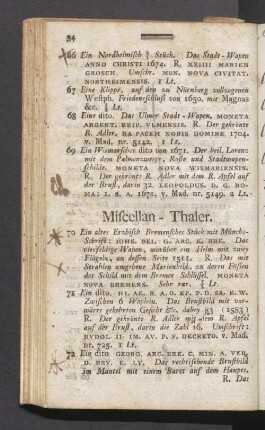 34
66 Ein Nordheimisch ⅔ Stück. Das Stadt-Wapen
ANNO CHRISTI 1674. R. XXIIII MARIEN
GROSCH. Umschr. MON. NOVA CIVITAT.
NORTHEIMENSIS. 1 Lt.
67 Eine Klippe, auf den zu Nürnberg vollzogenen
Westph. Friedensschluß von 1650. mit Magnas
&c. Lt.
68 Eine dito. Das Ulmer Stadt-Wapen, MONETA
ARGENT. REIP. VLMENSIS. R. Der gekrönte
R. Adler, DA PACEM NOBIS DOMINE 1704.
v. Mad. nr. 5142. 1 Lt.
69 Ein Wismarscher dito von 1671. Der heil. Lorenz
mit dem Palmenzweige, Roste und Stadtwapen-
schilde. MONETA NOVA WISMARIENSIS.
R. Der gekrönte R. Adler mit dem R. Apfel auf
der Brust, darin 32. LEOPOLDUS. D. G. RO-
MA: I. S. A. 1671. v. Mad. nr. 5149. 2 Lt.
Miscellan-Thaler.
70 Ein altes Erzbisch Bremensches Stück mit Münchs-
Schrift: IOHS. DEI. G. ARC. E. BRE. Das
vierfeldige Wapen, worüber ein Helm mit zwey
Flügeln, an dessen Seite 1511. R. Das mit
Strahlen umgebene Marienbild, an deren Füssen
der Schild mit dem Bremer Schlüssel, MONETA
NOVA BREMENS. Sehr rar. Lt.
71 Ein dito. HI. AE. B. A. D. EP. P. D. SA. E. W.
Zwischen 6 Waplein. Das Brustbild mit vor-
wärts gekehrten Gesicht &c. dabey 83 (1583)
R. Der gekrönte R. Adler mit dem R. Apfel
auf der Brust, darin die Zahl 16. Umschrift:
RVDOL. II. IM. AV. P. F. DECRETO. v. Mad.
nr. 725. 1 Lt.
72 Ein dito GEORG. ARC. BRE. C. MIN. A. VER.
D. BRV. E. LV. Das rechtssehende Brustbild
im Mantel mit einem Baret auf dem Haupte.
R. Das